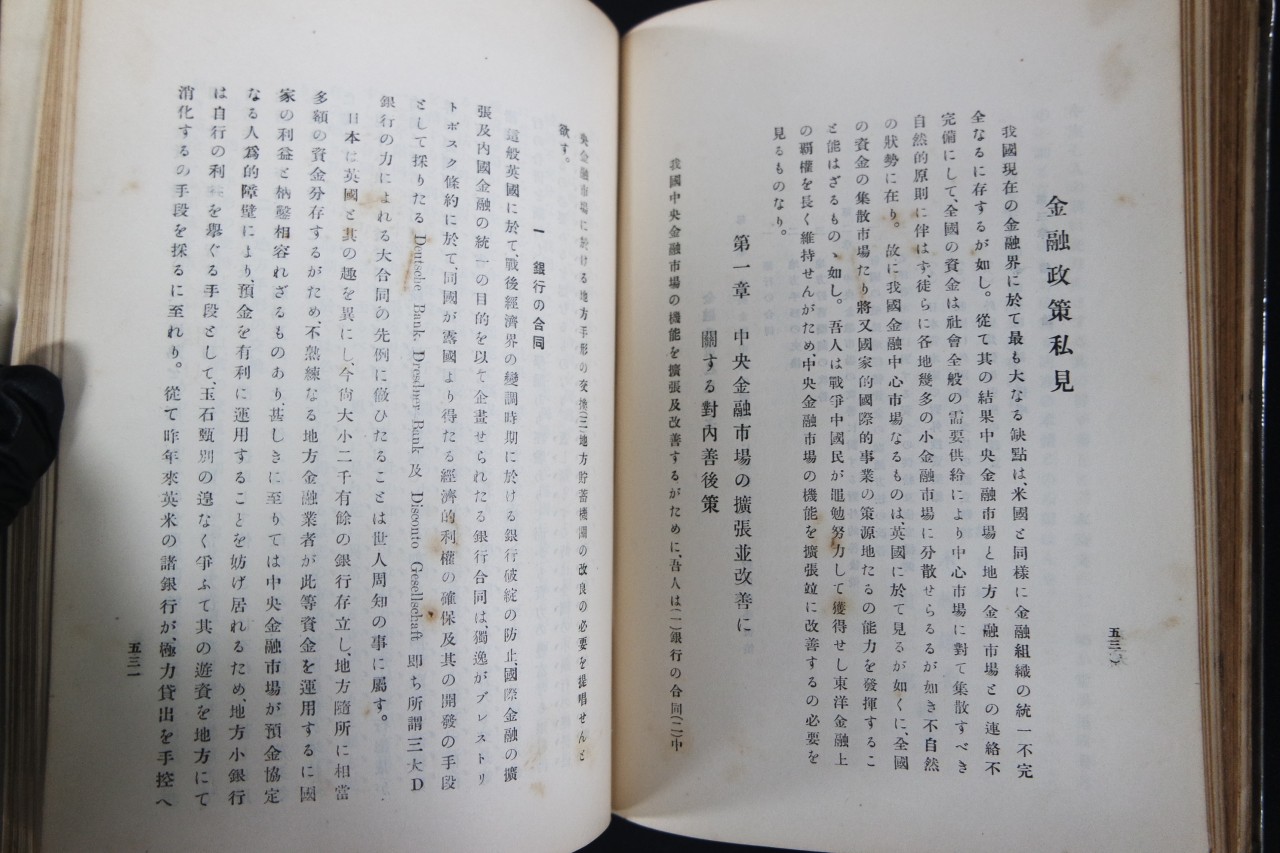 金融政策私見
我國現在の金融界に於て最も大なる缺點は、米國と同樣に金融組織の統一不完
全なるに存するが如し。從て其の結果中央金融市場と地方金融市場との連絡不
完備にして、全國の資金は社會全般の需要供給により中心市場に對て集散すべき
自然的原則に伴はず、徒らに各地幾多の小金融市場に分散せらるるが如き不自然
の狀勢に在り。故に我國金融中心市場なるものは、英國に於て見るが如くに、全國
の資金の集散市場たり將又國家的國際的事業の策源地たるの能力を發揮するこ
と能はざるものゝ如し。吾人は戰爭中國民が黽勉努力して獲得せし東洋金融上
の覇權を長く維持せんがため、中央金融市場の機能を擴張竝に改善するの必要を
見るものなり。
第一章 中央金融市場の擴張並改善に
關する對內善後策
我國中央金融市場の機能を擴張及改善するがために、吾人は(一)銀行の合同(二)中
央金融市場に於ける地方手形の交換(三)地方貯蓄機關の改良の必要を提唱せんと
欲す。
一 銀行の合同
這般英國に於て、戰後經濟界の變調時期に於ける銀行破綻の防止、國際金融の擴
張及內國金融の統一の目的を以て企畫せられたる銀行合同は、獨逸がブレストリ
トボスク條約に於て、同國が露國より得たる經濟的利權の確保及其の開發の手段
として採りたる Deutsche Bank, Dresdner Bank 及 Disconto Gesellschaft 即ち所謂三大D
銀行の力によれる大合同の先例に倣ひたることは世人周知の事に屬す。
日本は英國と其の趣を異にし、今尙大小二千有餘の銀行存立し、地方隨所に相當
多額の資金分存するがため不熟練なる地方金融業者が此等資金を運用するに國
家の利益と枘鑿相容れざるものあり、甚しきに至りては中央金融市場が預金協定
なる人爲的障壁により、預金を有利に運用することを妨げ居れるため地方小銀行
は自行の利益を擧ぐる手段として、玉石甄別の遑なく爭ふて其の遊資を地方にて
消化するの手段を採るに至れり。從て昨年來英米の諸銀行が、極力貸出を手控へ
五三一